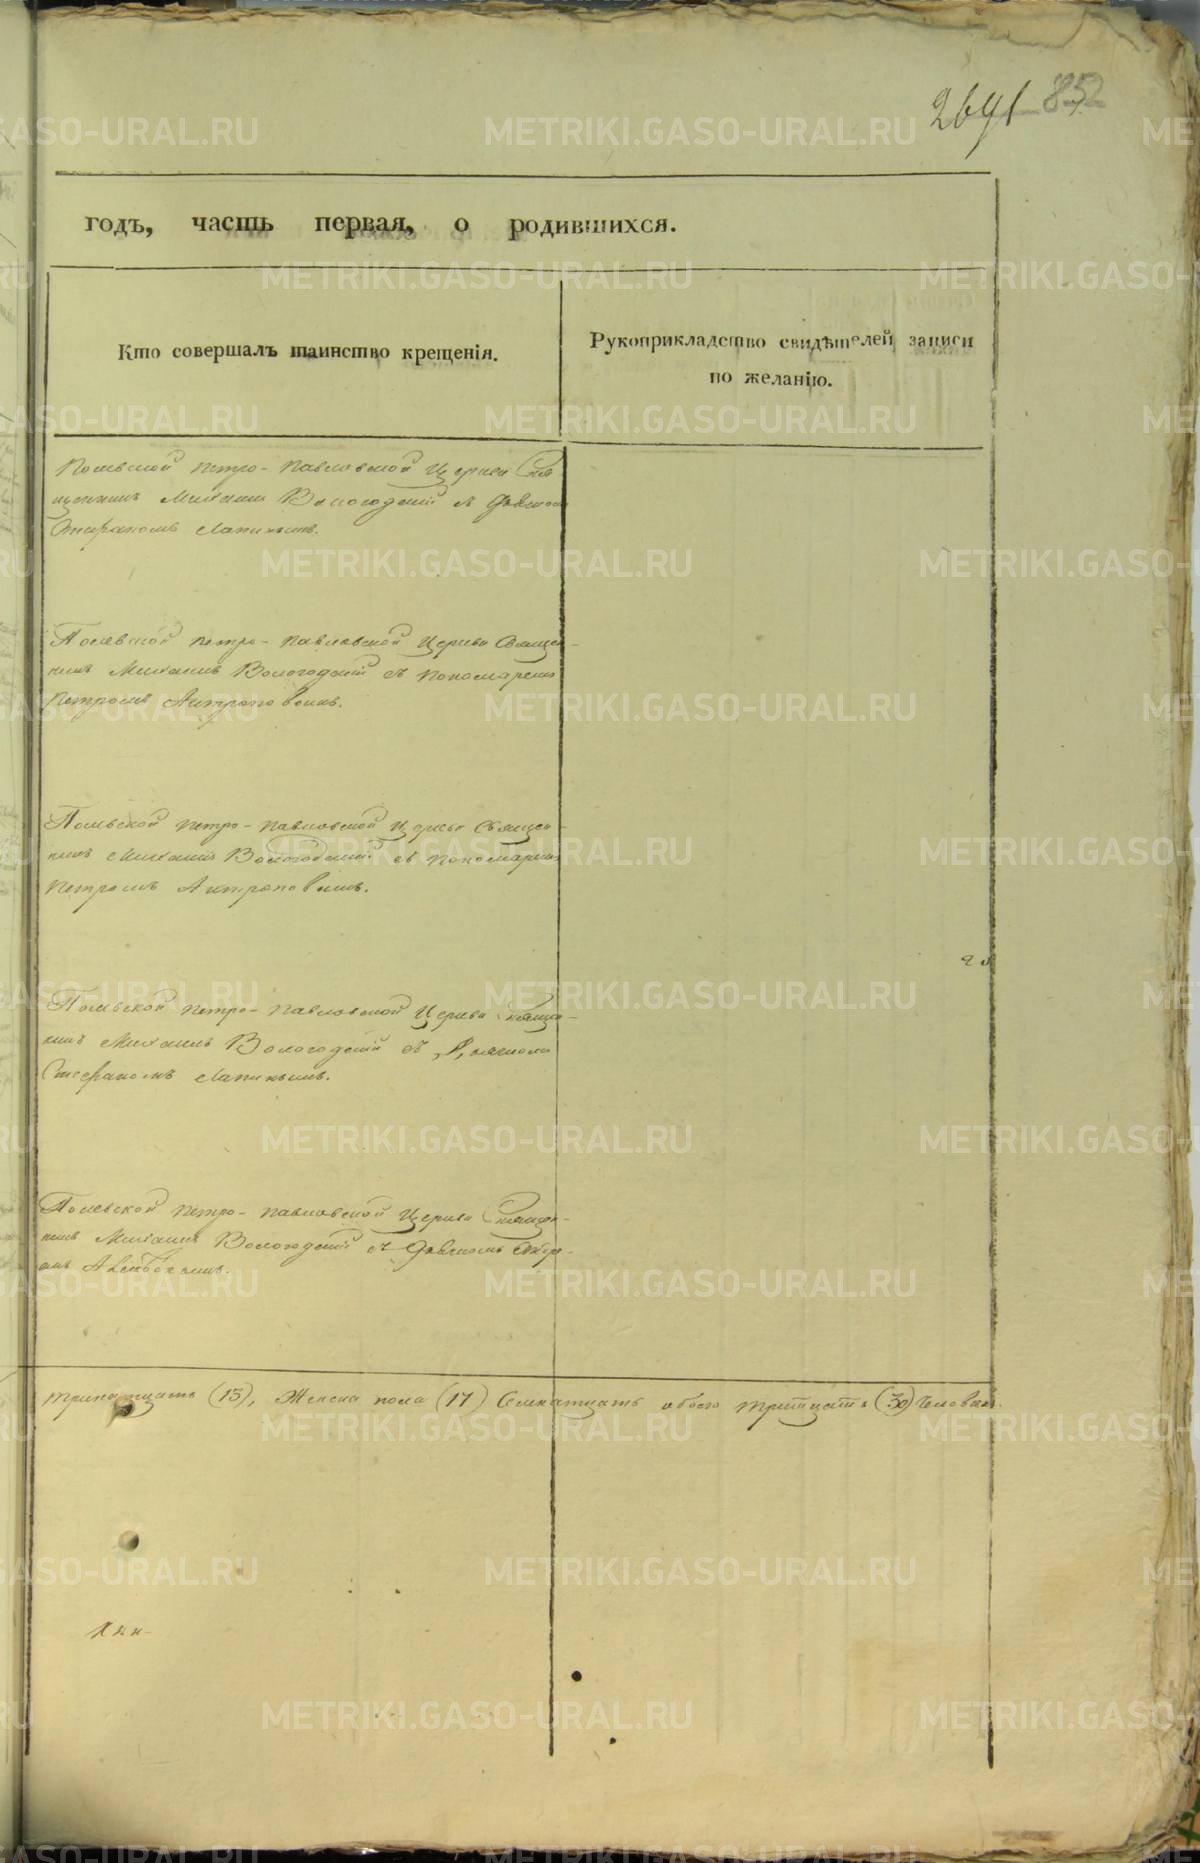 852
годъ, часть первая, о родившихся.
Кто совершалъ таинство крещенія.
Рукоприкладство свидѣтелей записи
по желанію.
Полевской Петро-Павловской Церкви Свя
щенникъ Михаилъ Вологодскій съ Дьячкомъ
Стефаномъ Лапинымъ.
Полевской Петро-Павловской Церкви Священ-
никъ Михаилъ Вологодскій съ Пономаремъ
Петромъ Антроповымъ.
Полевской Петро-Павловской Церкви Священ-
никъ Михаилъ Вологодскій съ Пономаремъ
Петромъ Антроповымъ.
Полевской Петро-Павловской Церкви Священ-
никъ Михаилъ Вологодскій съ Дьячкомъ
Стефаномъ Лапинымъ.
Полевской Петро-Павловской Церкви Священ-
никъ Михаилъ Вологодскій съ Дьячкомъ
тринатцать (13), Женска пола (17) Семнатцать обоего тритцать (30) Человѣкъ.
METRIKI.GASO-URAL.RU